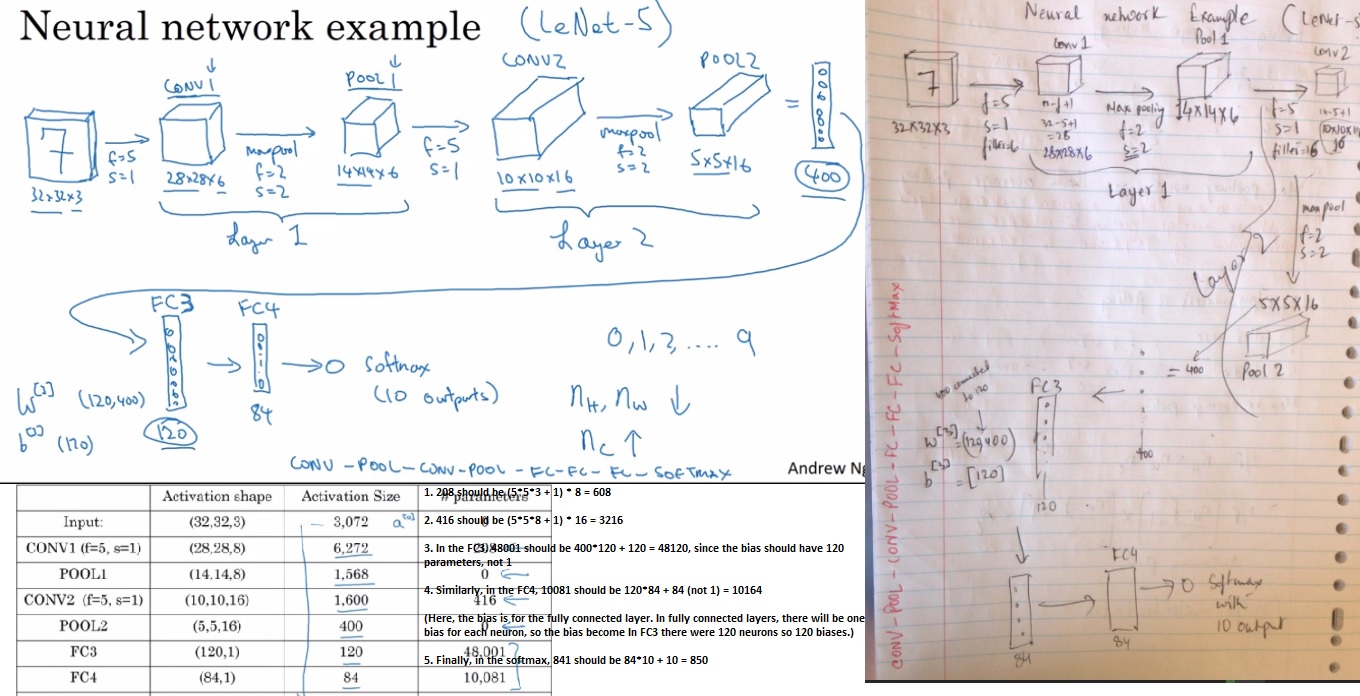 Neural network example (LeNet-5)
CONV1
POOL1
CONV2
POOL2
7
32x32x3
f=5
s=1
28x28x6
maxpool
f=2
s=2
14x14x6
f=5
s=1
10x10x16
maxpool
f=2
s=2
5x5x16
=
400
Layer 1
Layer 2
FC3
FC4
W[3] (120,400)
b[3] (120)
120
84
Softmax
(10 outputs)
0,1,2,.... 9
nH, nW ↓
nC ↑
CONV - POOL - CONV - POOL - FC - FC - FC - SOFTMAX
Andrew Ng
Activation shape Activation Size # parameters
Input: (32,32,3) 3,072 a[0] 0
CONV1 (f=5, s=1) (28,28,8) 6,272
POOL1 (14,14,8) 1,568 0
CONV2 (f=5, s=1) (10,10,16) 1,600 416
POOL2 (5,5,16) 400 0
FC3 (120,1) 120 48,001
FC4 (84,1) 84 10,081
1. 208 should be (5*5*3 + 1) * 8 = 608
2. 416 should be (5*5*8 + 1) * 16 = 3216
3. In the FC3, 48001 should be 400*120 + 120 = 48120, since the bias should have 120
parameters, not 1
4. Similarly, in the FC4, 10081 should be 120*84 + 84 (not 1) = 10164
(Here, the bias is for the fully connected layer. In fully connected layers, there will be one
bias for each neuron, so the bias become In FC3 there were 120 neurons so 120 biases.)
5. Finally, in the softmax, 841 should be 84*10 + 10 = 850
Neural network Example (LeNet-5
Conv 1
Pool 1
Conv 2
7
32x32x3
f=5
s=1
n-f+1
32-5+1
=28
28x28x6
Max pooling
f=2
s=2
14x14x6
f=5
s=1
filter=16
14-5+1
Layer 1
maxpool
f=2
s=2
Layer 2
5x5x16
Pool 2
= 400
400
400 connected
to 120
FC3
W[3] = (120,400)
b[3] = [120]
120
84
FC4
84
Softmax
with
10 output
CONV-POOL-CONV-POOL-FC-FC-FC-SOFTMAX